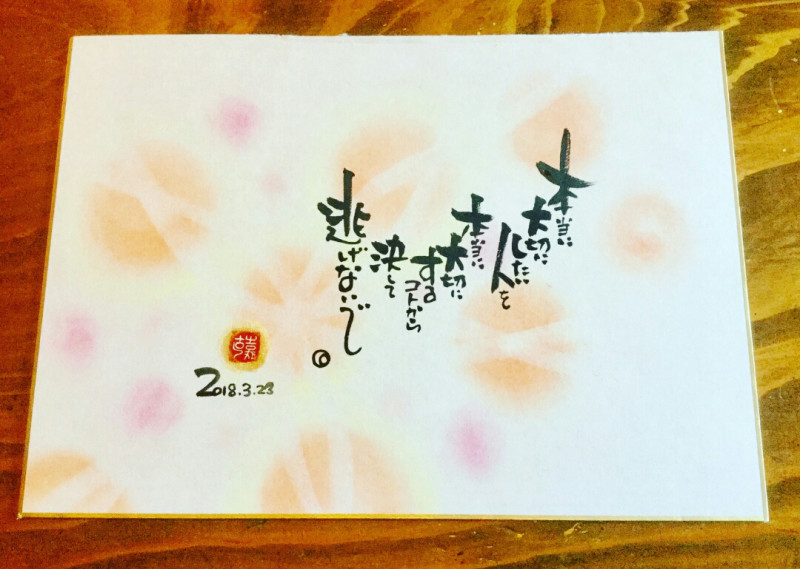 本当に
大切に
したい
人を
本当に
大切に
する
コトから
決して
逃げないで。
2018.3.23